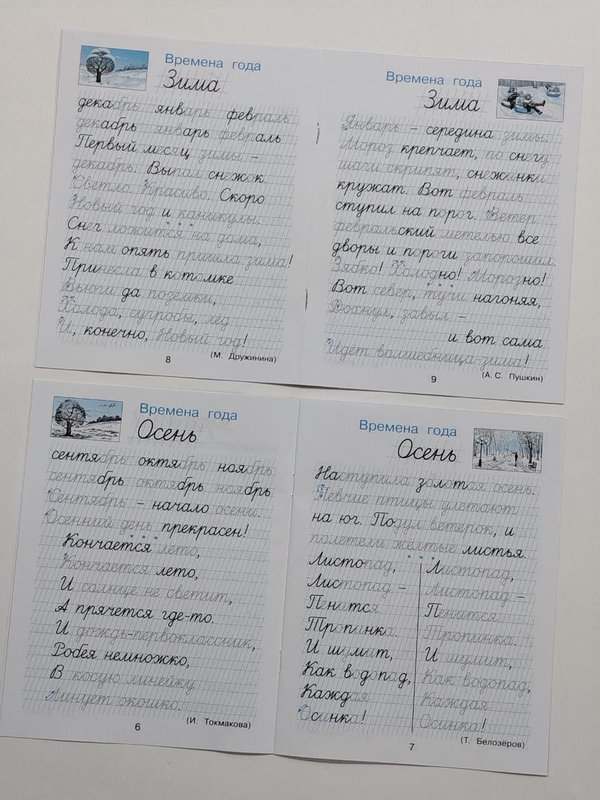 Времена года
Зима
декабрь январь февраль
декабрь январь февраль
Первый месяц зимы –
декабрь. Выпал снежок.
Светло. Красиво. Скоро
Новый год и каникулы.
Снег ложится на дома,
К нам опять пришла зима!
Принесла в котомке
Вьюги да позёмки,
Холода, сугробы, лёд
И, конечно, Новый год!
8
(М. Дружинина)
Времена года
Зима
Январь – середина зимы.
Мороз крепчает, по снегу
шаги скрипят, снежинки
кружат. Вот февраль
ступил на порог. Ветер
февральский метелью все
дворы и пороги запорошил.
Зябко! Холодно! Морозно!
Вот север, тучи нагоняя,
Дохнул, завыл –
и вот сама
Идёт волшебница-зима!
9
(А. С. Пушкин)
Времена года
Осень
сентябрь октябрь ноябрь
сентябрь октябрь ноябрь
Сентябрь – начало осени.
Осенний день прекрасен!
Кончается лето,
Кончается лето,
И солнце не светит,
А прячется где-то.
И дождь-первоклассник,
Робея немножко,
В косую линейку
Линует окошко.
(И. Токмакова)
6
Времена года
Осень
Наступила золотая осень.
Певчие птицы улетают
на юг. Подул ветерок, и
полетели жёлтые листья.
Листопад,
Листопад –
Пенится
Тропинка.
И шумит,
Как водопад,
Каждая
Осинка!
Листопад,
Листопад –
Пенится
Тропинка.
И шумит,
Как водопад,
Каждая
Осинка!
7
(Т. Белозёров)